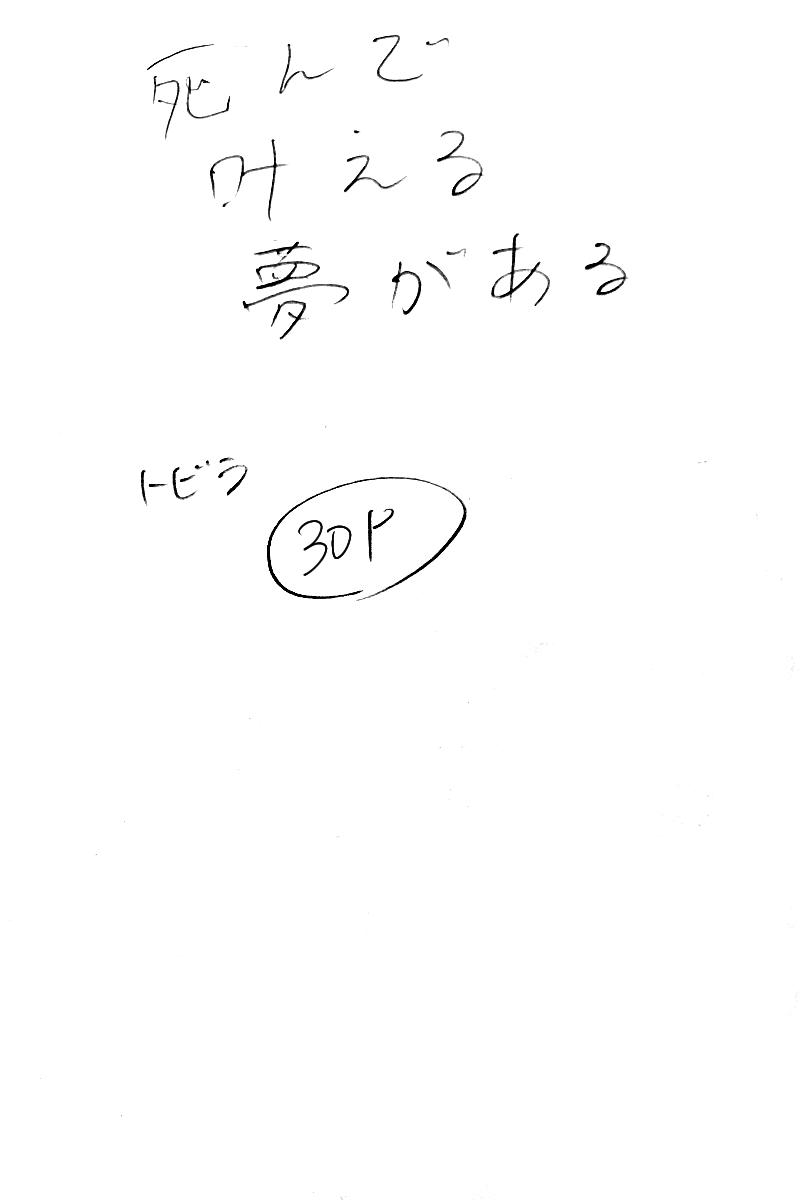 死んで
叶える
夢がある
トビラ
30P